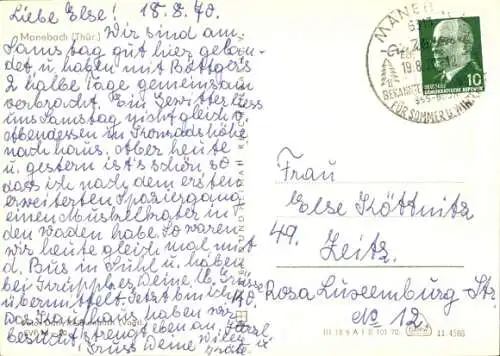 Liebe Else! 18.8.70.
Manebach (Thür.)
Wir sind am
Samstag gut hier gelan-
det u. haben mit Böttgers
2 halbe Tage gemeinsam
verbracht. Ein Gewitter liess
uns Samstag nicht gleich v.
Abendessen in
nach Haus. Aber heute
u. gestern ist's schön, so
dass ich nach dem ersten
erweiterten Spaziergang
einen Muskelkater in
den Waden habe. So waren
wir heute gleich mal mit
d. Bus in Suhl u. haben
bei Deine lb. Grüsse
übermittelt. Jetzt bin ich
das Krankenhaus, haben wir
besucht, strengt eben an. Herzl.
Gruss Deine
MANEBACH
19.8.70
FÜR SOMMER U. WINTER
10
DEUTSCHE
DEMOKRATISCHE REPUBLIK
Frau
Else Köttnitz
49. Zeitz
Rosa Luxemburg-St.
No 12.
III 18 9 A 1 D 101 70
11 4588